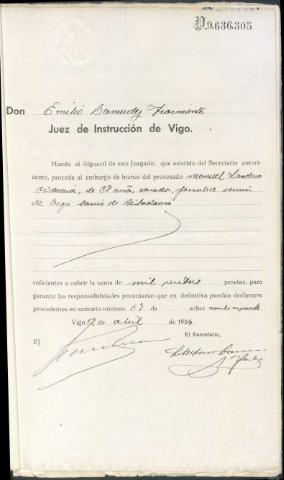 9.636.305
Don Emilio
Juez de Instrucción de Vigo.
Mando al Alguacil de este Juzgado, que asistido del Secretario autori-
zante, proceda al embargo de bienes del procesado Manuel
de 38 años, casado, jornalero, vecino
de Vigo barrio de
suficientes a cubrir la suma de mil pesetas, para
garantir las responsabilidades pecuniarias que en definitiva puedan declararse
procedentes en sumario número 67 de sobre
Vigo 12 de abril de 1934
El El Secretario,